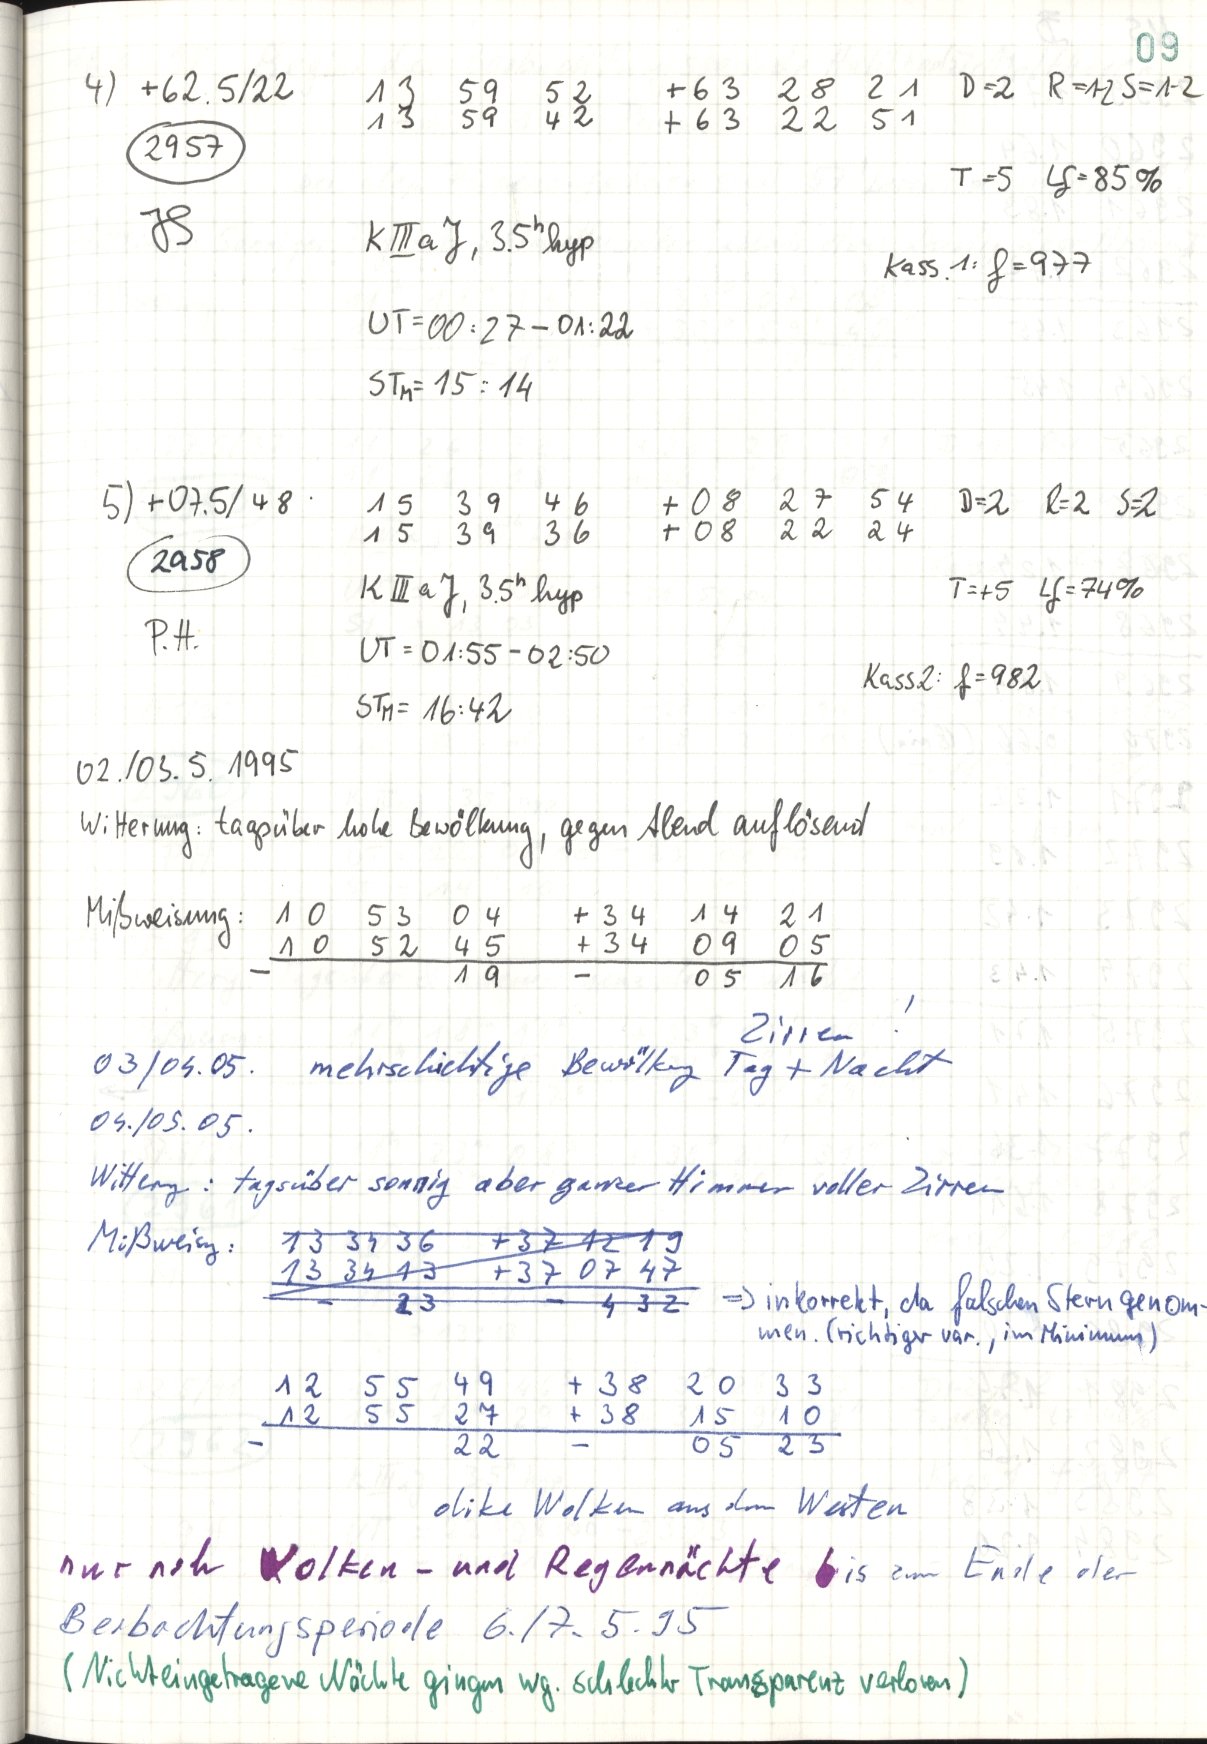 09
4) +62.5/22 13 59 52 +63 28 21 D=2 R=1-2 S=1-2
13 59 42 +63 22 51
2957
T=5 Lf=85%
JS
K III a J, 3.5h hyp
Kass.1: f=977
UT=00:27-01:22
STM=15:14
5) +07.5/48 15 39 46 +08 27 54 D=2 R=2 S=2
15 39 36 +08 22 24
2958
K III a J, 3.5h hyp T=+5 Lf=74%
P.H.
UT=01:55-02:50
Kass2: f=982
STM=16:42
02./03.5.1995
Witterung: tagsüber hohe Bewölkung, gegen Abend auflösend
Mißweisung: 10 53 04 +34 14 21
10 52 45 +34 09 05
- 19 - 05 16
Zirren !
03/04.05. mehrschichtige Bewölkg Tag + Nacht
04./05.05.
Witterg: tagsüber sonnig aber ganzer Himmer voller Zirren
Mißweisg: 13 34 36 +37 12 19
13 34 13 +37 07 47
- 23 - 4 32 => inkorrekt, da falschen Stern genom-
men. (richtiger var., im Minimum)
12 55 49 +38 20 33
12 55 27 +38 15 10
- 22 - 05 23
dike Wolken aus dem Westen
nur noch Wolken- und Regennächte bis zum Ende der
Beobachtungsperiode 6./7.5.95
(Nichteingetragene Nächte gingen wg. schlechter Transparenz verloren)